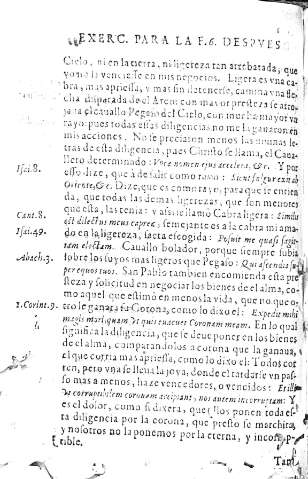 EXERC. PARA LA F.6. DESPVES
Cielo, ni en la tierra, ni ligereza tan arrebatada, que
yo no la venciesse en mis negocios. Ligera es vna ca-
bra, mas apriessa, y mas sin detenerse, camina vna fle-
cha disparada de el Arco; con mas presteza se arro-
jara el cauallo Pegaso del Cielo, con mucha mayor va
rayo: pues todas essas diligencias no me la ganaron en
mis acciones. No te precisaron menos las vnas le-
tras de esta diligencia, pues Christo se llama, el Caua-
llero determinado: Voca nomen ejus accelera, &c. Y por
esso dize, que à de salir como rayo: Sicut fulgur exit ab
Oriente, &c. Dize, que es como rayo, para que se entien
da, que todas las demas ligerezas, que son menores
que esta, las tenia: y assi se llamò Cabra ligera: Similis
est dilectus meus capreæ; semejante es a la cabra mi ama-
do en la ligereza, saeta escogida: Posuit me quasi sagit-
tam electam. Cauallo bolador, porque siempre subia
sobre los suyos mas ligeros que Pegaso: Qui ascendis su-
per equos tuos. San Pablo tambien encomienda esta pre
steza y solicitud en negociar los bienes de el alma, co-
mo aquel que estimò en menos la vida, que no que-
rer le ganara la Corona, como lo dixo el:
En lo qual
significa la diligencia, que se deue poner en los bienes
de el alma, comparandolos a corona que la ganaua,
el que corria mas apriessa, como lo dixo el: Todos cor
ren, pero vna se lleua la joya, donde el tardarse vn pas-
so mas a menos, haze vencedores, o vencidos: Et illi
vt corruptibilem coronam accipiant, nos autem incorruptam: Y
es el dolor, como si dixera, que ellos ponen toda es-
ta diligencia por la corona, que presto se marchita,
y nosotros no la ponemos por la eterna, y incorrup-
tible.
Tant
Isai. 8.
Cant. 8.
Isai. 49.
Abach. 3.
1. Corint. 9.